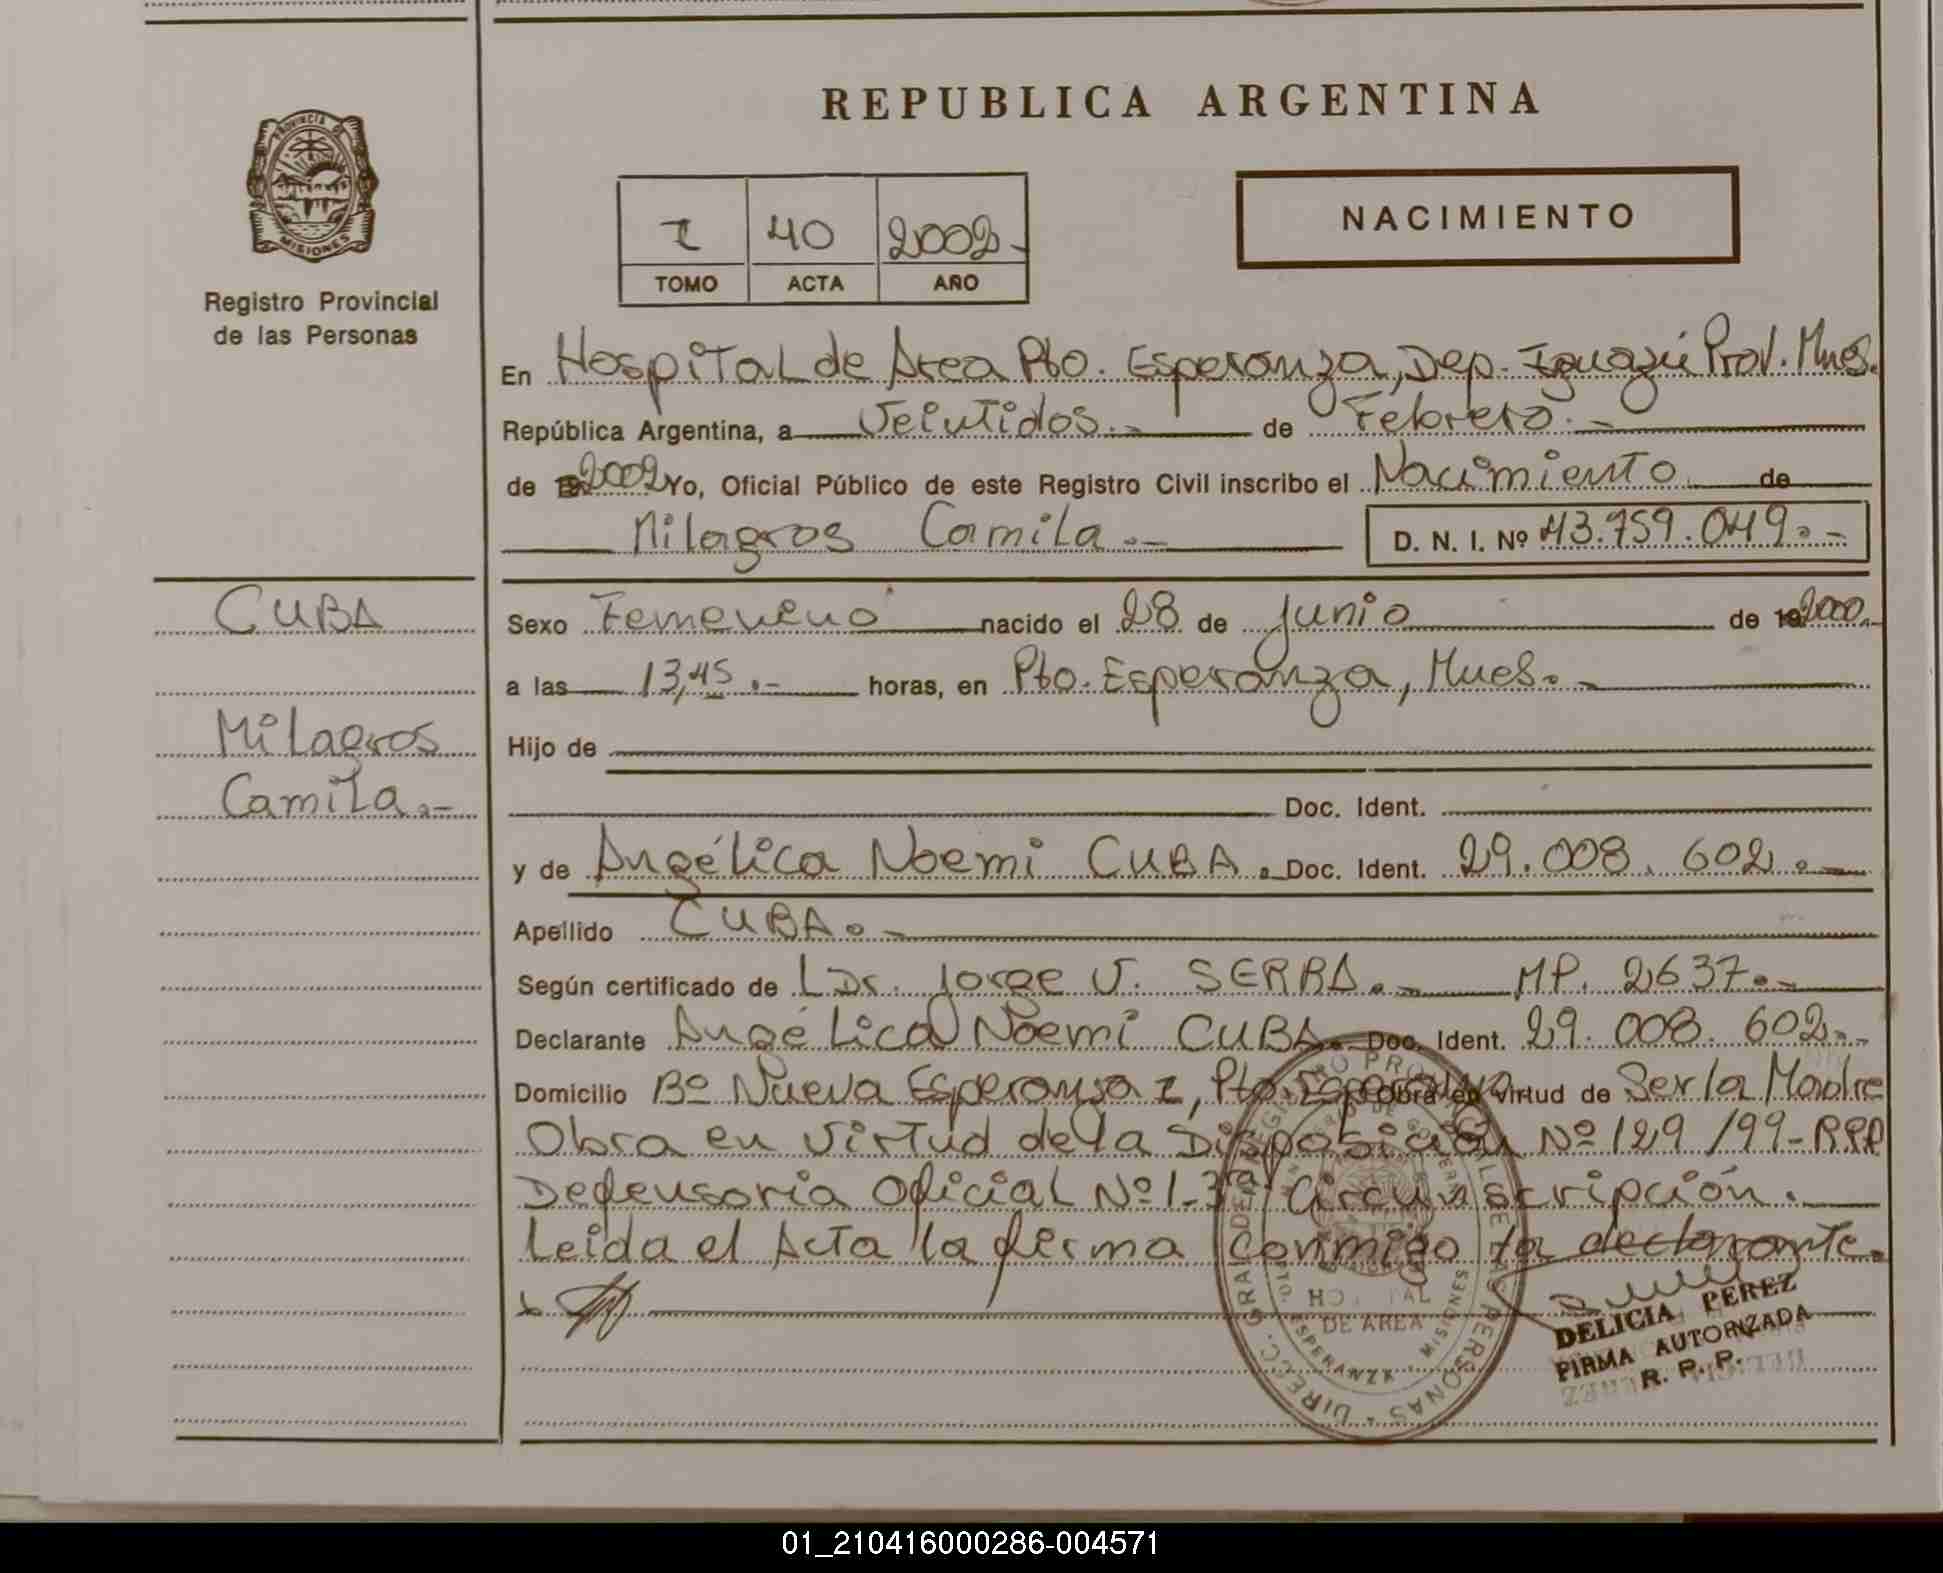 REPUBLICA ARGENTINA
PROVINCIA DE
MISIONES
Registro Provincial
de las Personas
I 40 2002.-
TOMO ACTA AÑO
NACIMIENTO
En Hospital de Area Pto. Esperanza, Dep. Iguazú Prov. Mnes.
República Argentina, a Veintidos.- de Febrero.-
de 2002 Yo, Oficial Público de este Registro Civil inscribo el Nacimiento de
Milagros Camila.- D. N. I. Nº 43.759.049.-
CUBA
Milagros
Camila.-
Sexo Femenino nacido el 28 de Junio de 2000.-
a las 13,45.- horas, en Pto. Esperanza, Mnes.-
Hijo de
Doc. Ident.
y de Angélica Noemi CUBA. Doc. Ident. 29.008.602.-
Apellido CUBA.-
Según certificado de Dr. Jorge V. SERRA.- MP. 2637.-
Declarante Angélica Noemi CUBA. Doc. Ident. 29.008.602.-
Domicilio Bº Nueva Esperanza I, Pto. Esperanza Obra en virtud de Ser la Madre
Obra en Virtud de la Disposición Nº 129/99-RPP
Defensoria Oficial Nº 1-3ra Circunscripción.
Leida el Acta la firma conmigo la declarante.
DE AREA
ESPERANZA - MISIONES
DELICIA PEREZ
FIRMA AUTORIZADA
R. P. P.
01_210416000286-004571